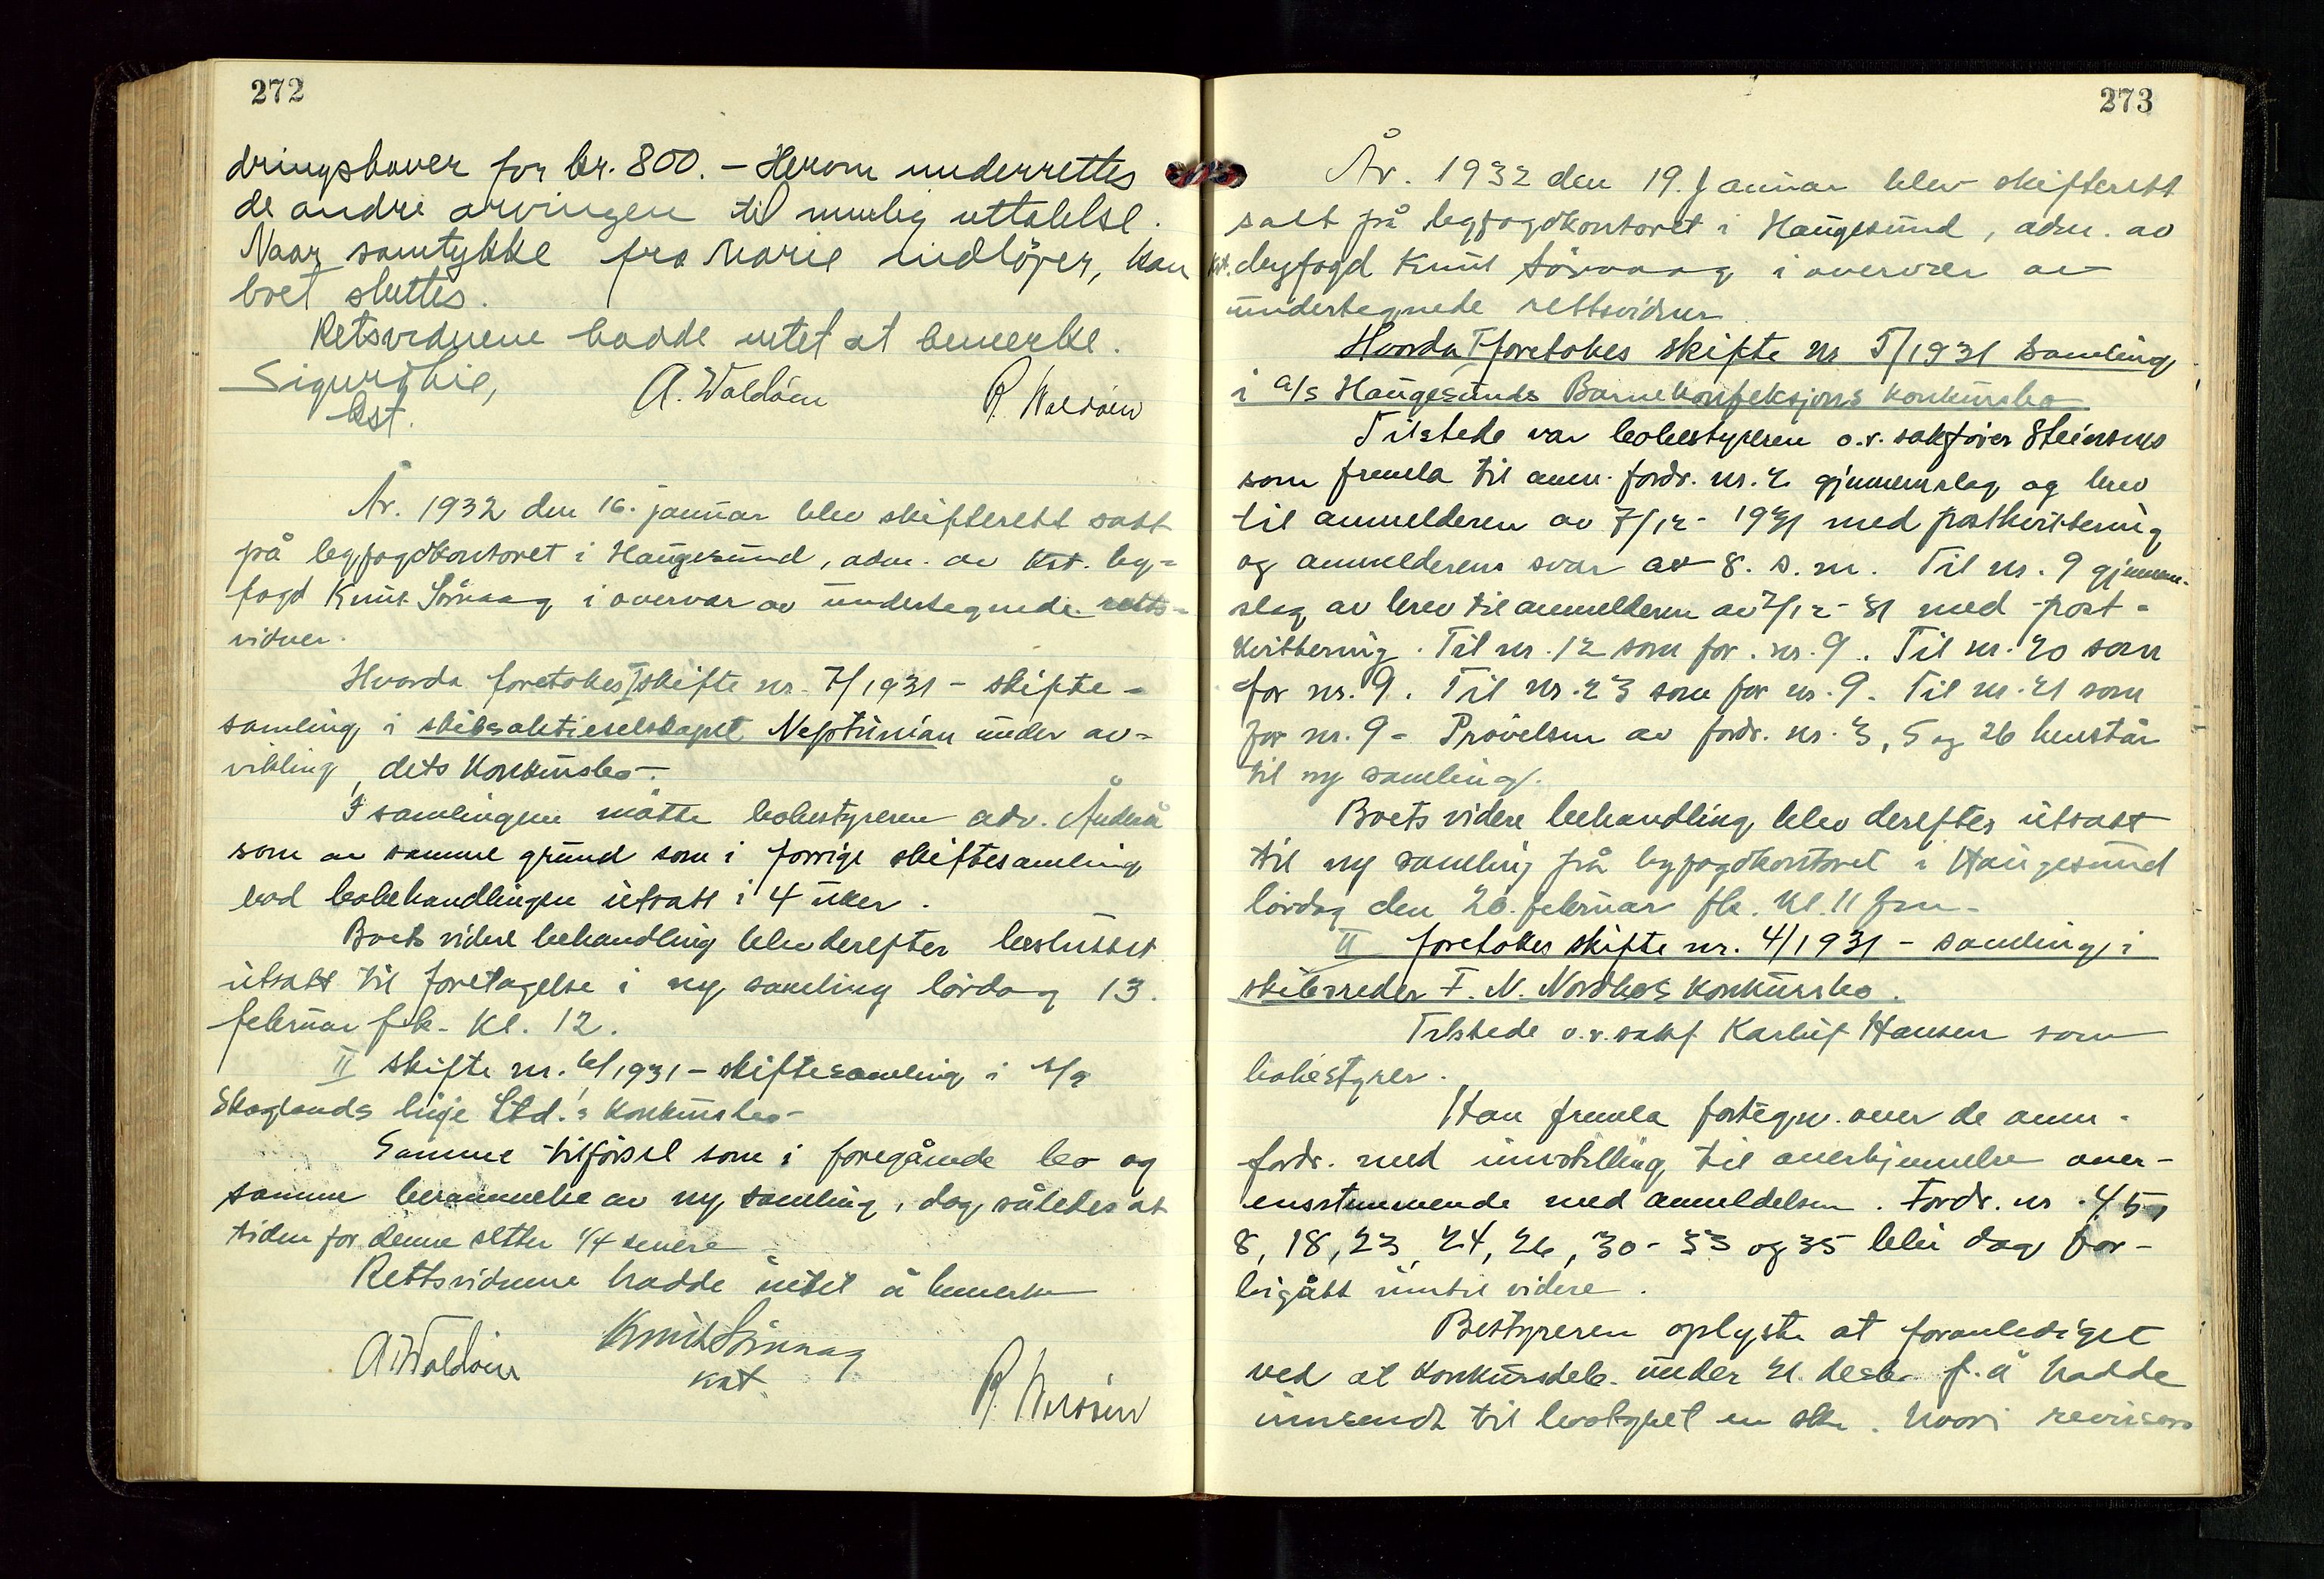 272
dringshaver for kr. 800. - Herom underrettes
de andre arvingen til mulig uttalelse.
Naar samtykke fra Marie indlöper, kan
boet sluttes.
Retsvidnene hadde intet at bemerke.
A. Waldøen
kst.
År. 1932 den 16. januar blev skifterett satt
på byfogdkontoret i Haugesund, adm. av kst. by-
fogd Knut Sörvaag i overvær av undertegnede retts-
vidner.
Hvorda foretokes I skifte nr. 7/1931 - skifte-
samling i skibsaktieselskapet Neptunian under av-
vikling, dets konkursbo.
I samlingen møtte bobestyreren adv. Andreå
som av samme grund som i forrige skiftesamling
bad bobehandlingen utsatt i 4 uker.
Boets videre behandling blev derefter besluttet
utsatt til foretagelse i ny samling lördag 13.
februar f.k. kl. 12.
II skifte nr. 6/1931 - skiftesamling i A/S
Skoglands linje Ltd.'s konkursbo-
Samme tilförsel som i foregående bo og
samme berammelse av ny samling, dog således at
tiden for denne settes 1/4 senere
Rettsvidnene hadde intet å bemerke
A. Waldøen
Knut Sörvaag
kst.
273
År. 1932 den 19. Januar blev skifterett
satt på byfogdkontoret i Haugesund, adm. av
kst. byfogd Knut Sörvaag i overvær av
undertegnede rettsvidner
Hvorda I foretokes skifte nr 5/1931 samling
i a/s Haugesunds Barnekonfeksjons konkursbo
Tilstede var bobestyreren o.r. sakförer Steinsnes
som fremla til anm. fordr. nr. 2 gjennemslag og brev
til anmelderen av 7/12 - 1931 med postkvittering
og anmelderens svar av 8. s.m. Til nr. 9 gjennem-
slag av brev til anmelderen av 7/12 - 31 med post-
kvittering. Til nr. 12 som for nr. 9. Til nr. 20 som
for nr. 9. Til nr. 23 som for nr. 9. Til nr. 21 som
for nr. 9 - Prövelsen av fordr. nr. 3, 5 og 26 henstår
til ny samling.
Boets videre behandling blev derefter utsatt
til ny samling på byfogdkontoret i Haugesund
lördag den 20. februar fk. kl. 11 fm.
II foretokes skifte nr. 4/1931 - samling i
skibsreder F. N. Nordbös konkursbo.
Tilstede o.r. sakf. Karluf Hansen som
bobestyrer.
Han fremla fortegn. over de anm.
fordr. med innstilling til anerkjennelse over-
ensstemmende med anmeldelsen. Fordr. nr. 4, 5,
8, 18, 23, 24, 26, 30 - 33 og 35 blei dog for-
bigått inntil videre.
Bestyreren oplyste at foranlediget
ved at konkursdeb. under 21. desbr. f.å hadde
innsendt til bostyret en skr. hvori revisors